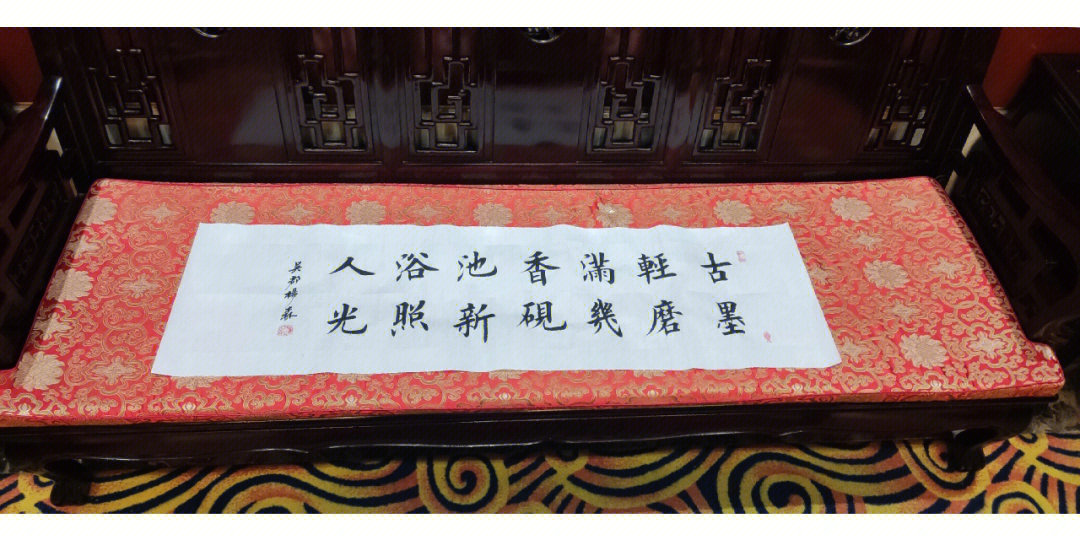 古墨
輕磨
滿幾
香硯
池新
浴照
人光
吴郡楊森